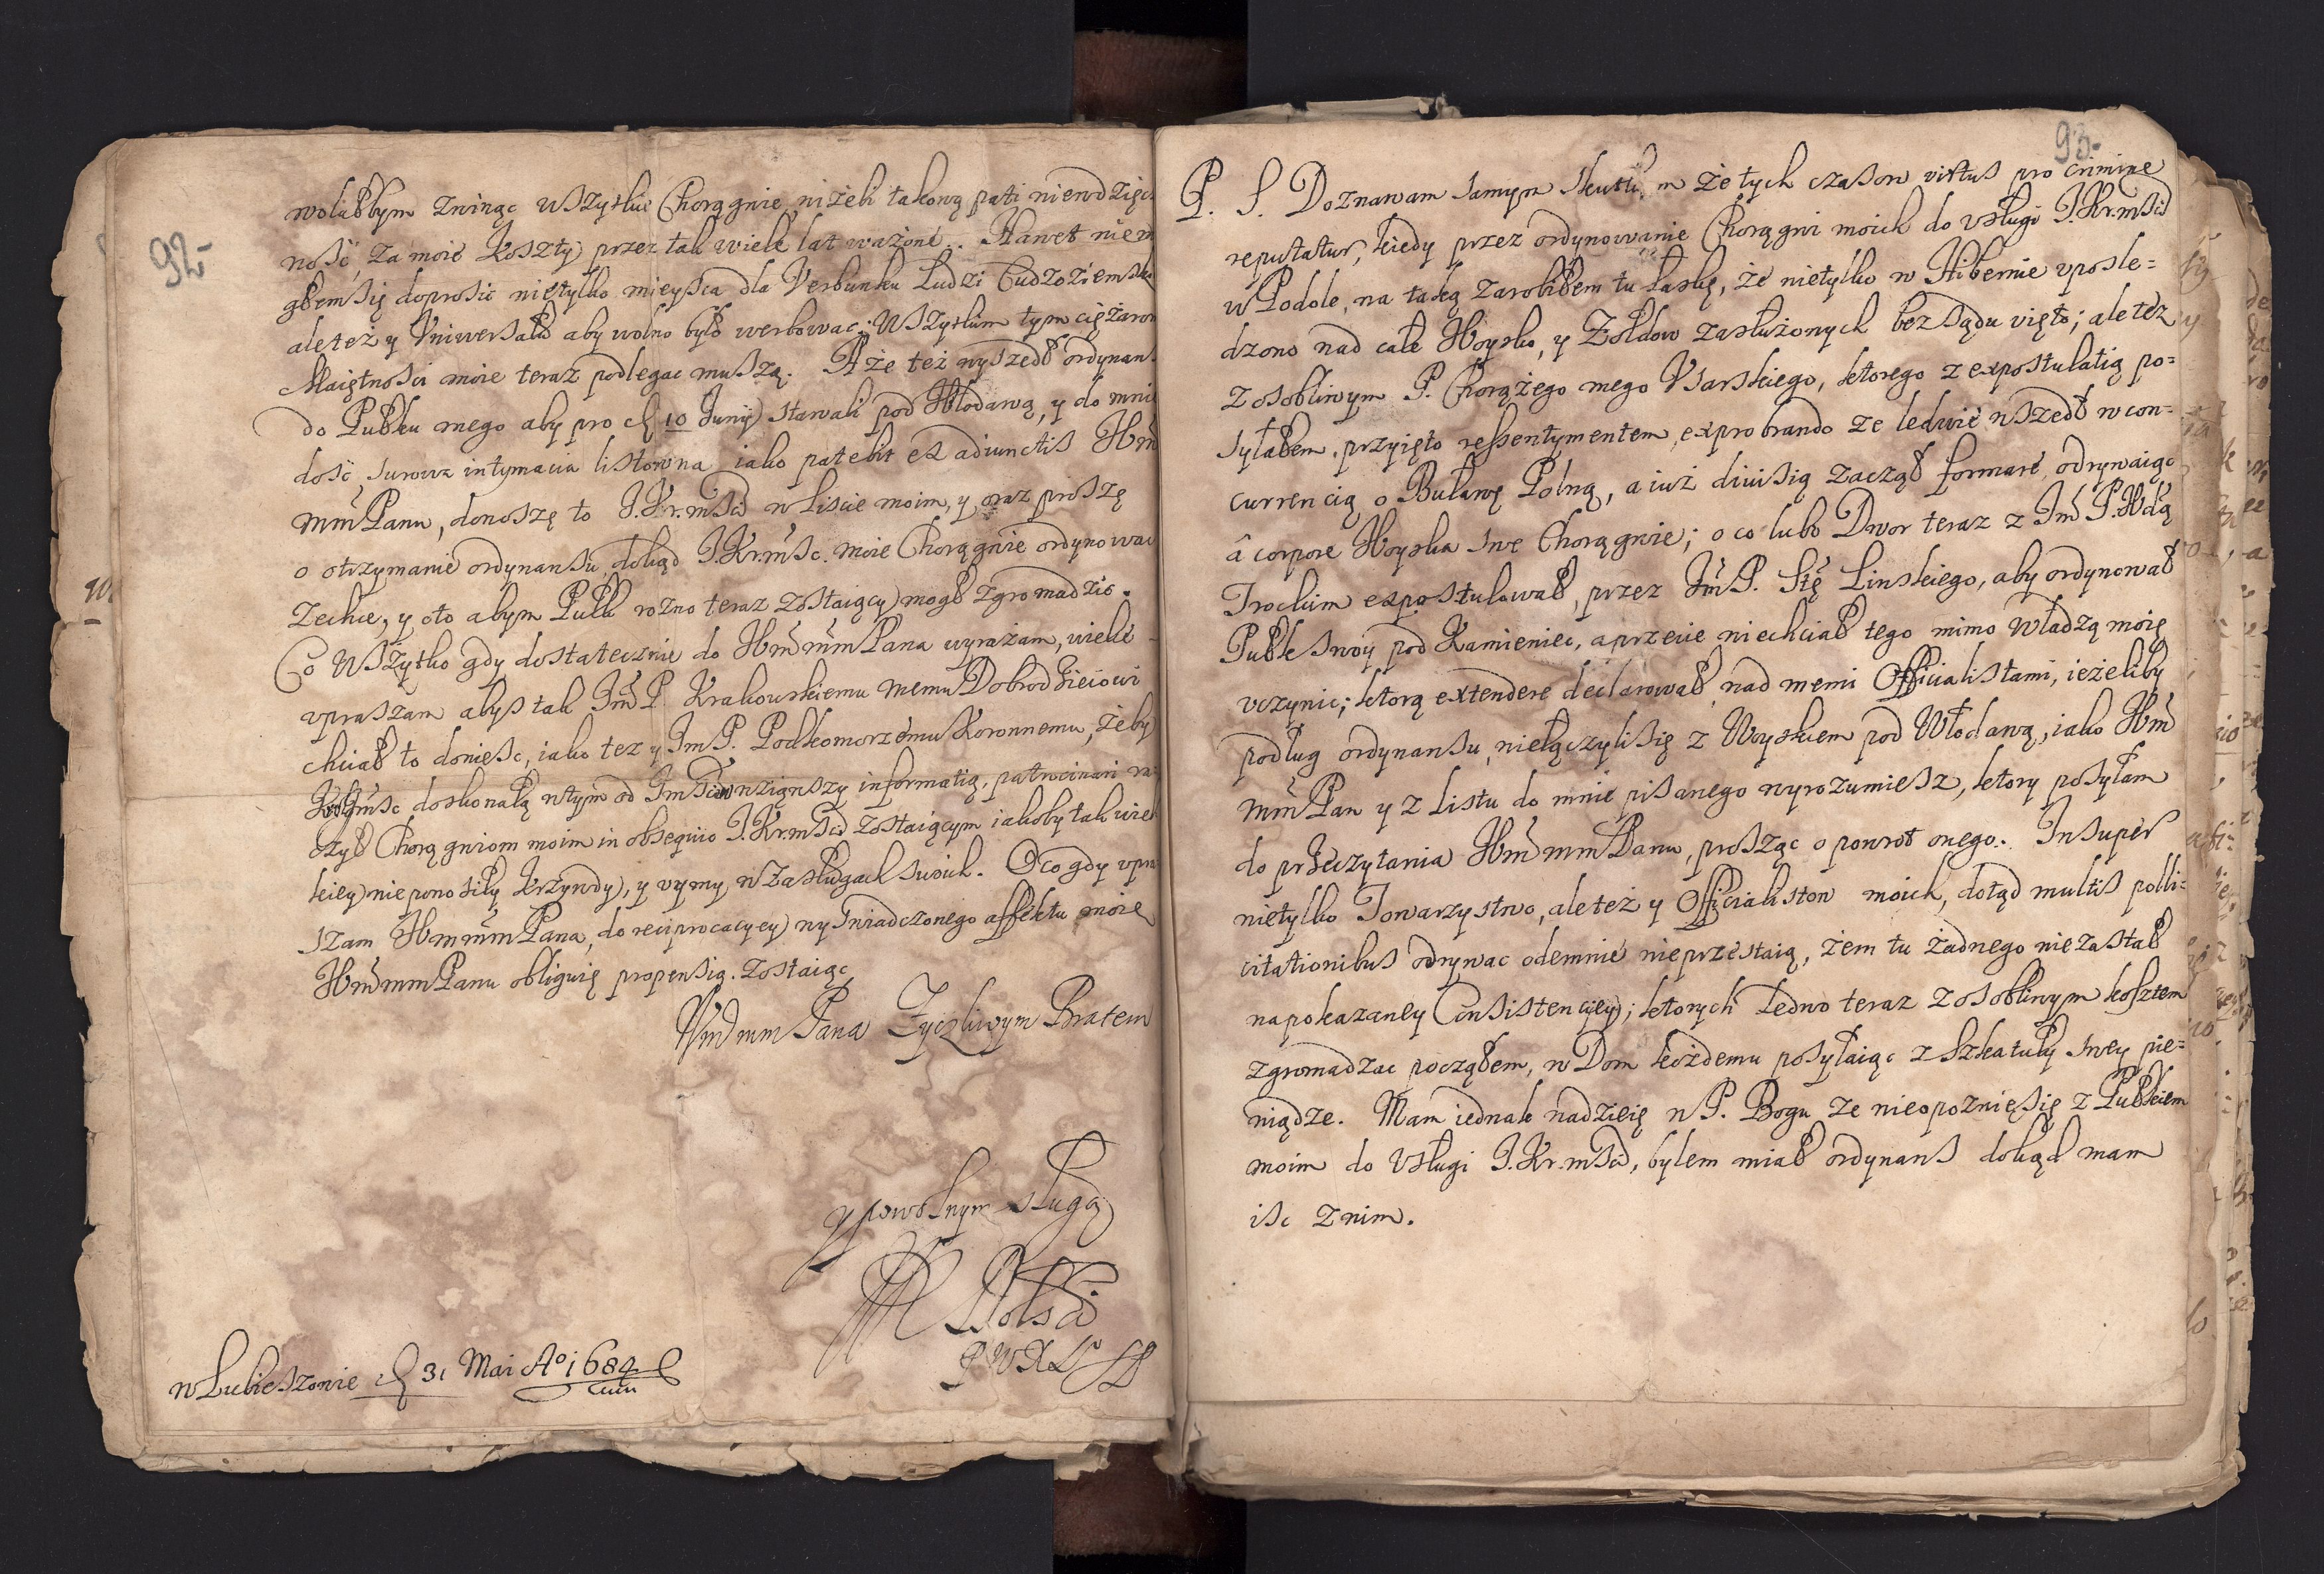 92-
wolałbym zwinąc wszytkie Chorągnie, niżeli takową pati niewdzięcz
ność, za moie koszty przez tak wiele lat ważone. Nawet niem
głem się doprosić nietylko mieysca dla Verbunku Ludzi Cudzoziemsk
ale też y Vniwersału aby wolno było werbowac; wszytkim tym ciężarom
Maiętności moie teraz podlegac muszą. A że też wyszedł ordynans
do Pułku mego aby pro d 10 Junij stawali pod Włodawą, y do mnie
dość surowa intymacia listowna iako patebit ex adiunctis Wm̃
mm̃ Panu, donoszę to J.Kr.mści w liście moim, y oraz proszę
o otrzymanie ordynansu, dokąd J.Kr.mść. moie Chorągnie ordynowac
zechce, y oto abym Pułk rozno teraz zostaiący mogł zgromadzic.
Co wszytko gdy dostatecznie do Wm̃ mm̃ Pana wyrażam, wielce
vpraszam abys tak Jm̃ P. Krakowskiemu memu Dobrodzieiowi
chciał to donieść, iako tez y Jm P. Podkomorzemu Koronnemu, żeby
doskonałą w tym od Jmści wziąwszy informatią, patrocinari ra
czył Chorągniom moim in obsequio J.Kr.mści zostaiącym iakoby tak wiel
kiey nie ponosiły krzywdy, y vymy w zasługach swoich. O co gdy vpra
szam Wm mm̃ Pana, do reciprocacyey wyswiadczonego affektu moię
Wm̃ mm Panu obliguię propensią. Zostaiąc
Wm̃ mm Pana Zyczliwym Bratem
y powolnym sługą
w Lubieszowie d 31 Mai Aº 1684
93-
P. S. Doznawam samym skutkiem że tych czasow virtus pro crimine
reputatur, kiedy przez ordynowanie Chorągwi moich do vsługi J.Kr.mści
w Podole, na taką zarobiłem tu łaskę, że nietylko w Hibernie vposle=
dzono nad całe Woysko, y Zołdow zasłużonych bez sądu vięto; ale też
z osobliwym P. Chorążego mego Vsarskiego, ktorego z expostulatią po=
syłałem, przyięto ressentymentem, exprobrando ze ledwie wszedł w con=
currencią o Buławę Polną, a iuż diuisią zaczął formare, odrywaiąc
â corpore Woyska swe Chorągnie; o co lubo Dwor teraz z Jm̃ P. Wdą
Trockim expostulował, przez Jm̃ P. Stę Linskiego, aby ordynował
Pułk swoy pod Kamieniec, a przecie niechciał tego mimo władzą moię
vczynic; ktorą extendere declarował, nad memi Officialistami, ieżeliby
podług ordynansu, niełączyli się z Woyskiem pod Włodawą, iako Wm̃
mm̃ Pan y z listu do mnie pisanego wyrozumiesz, ktory posyłam
do przeczytania Wm̃ mm Panu, prosząc o powrot onego. Insuper
nietylko Towarzystwo, ale też y Officialistow moich, dotąd multis polli=
citationibus odrywac odemnie nieprzestaią, żem tu żadnego nie zastał
na pokazaney Consistencyey; ktorych ledwo teraz z osobliwym kosztem
zgromadzac począłem, w Dom kożdemu posyłaiąc z Szkatuły swey pie=
niądze. Mam iednak nadzieię w P. Bogu ze nieopoznię się z Pułkiem
moim do Vsługi J.Kr.mści, bylem miał ordynans dokąd mam
isc z nim.